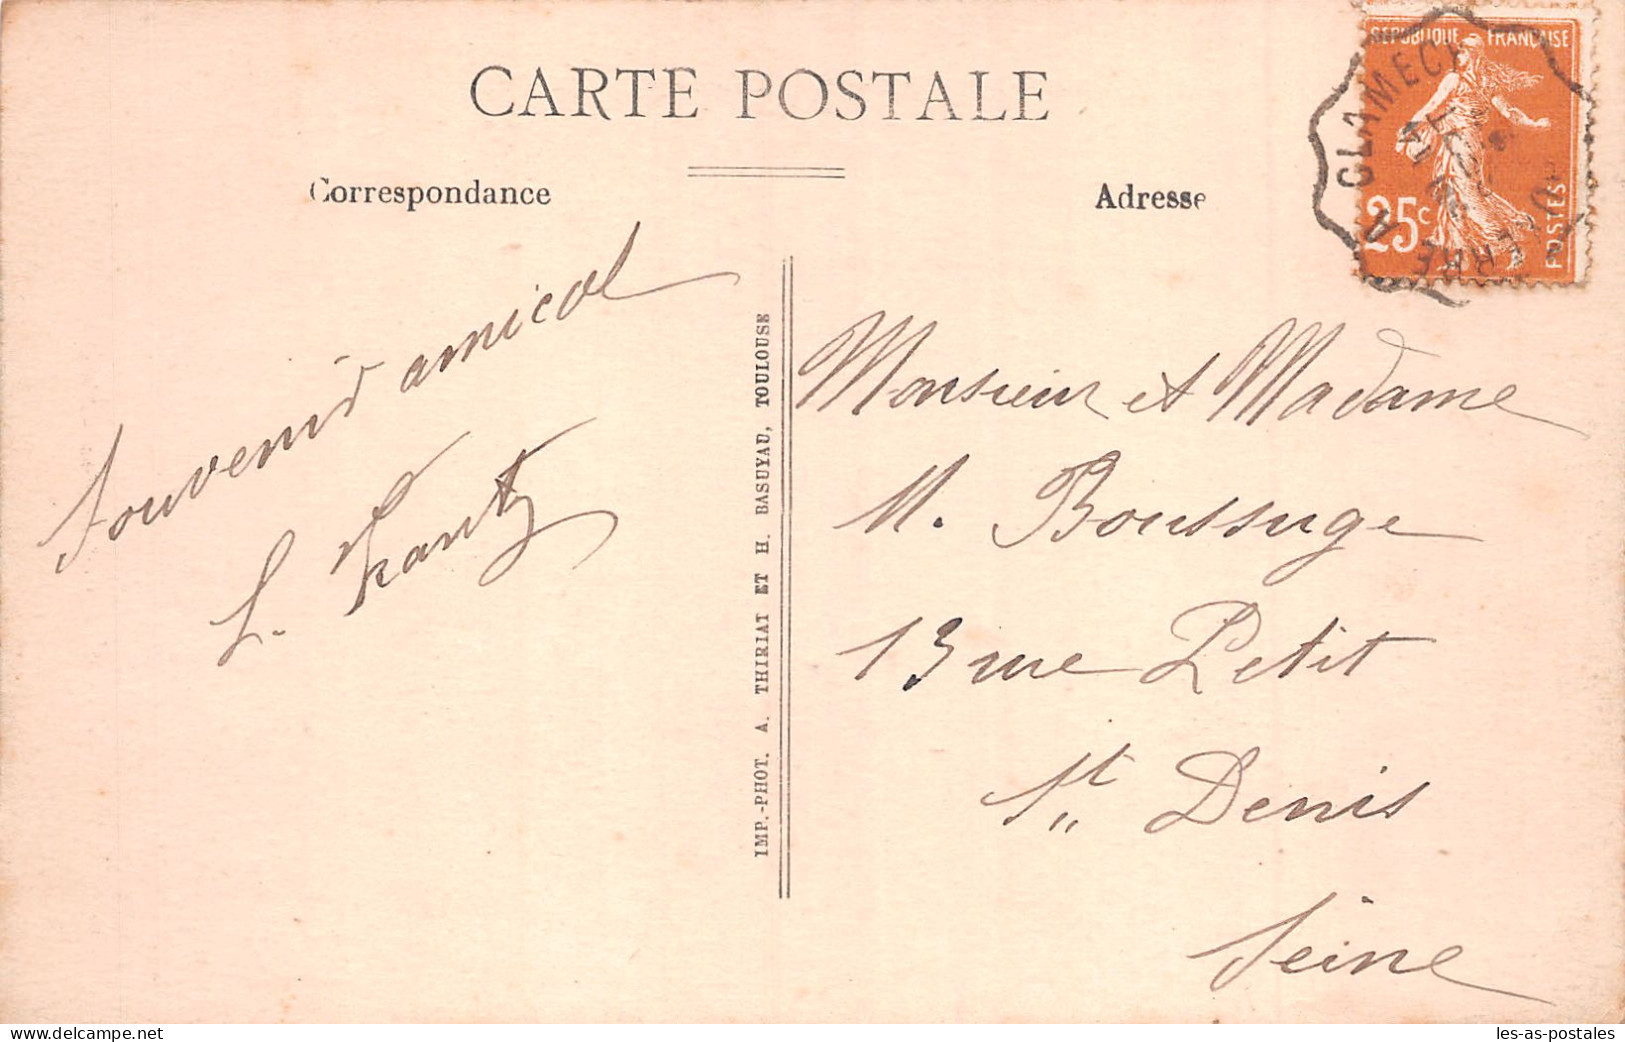 CARTE POSTALE
Correspondance
Adresse
RÉPUBLIQUE FRANÇAISE
25c
POSTES
A CLAMECY
Souvenir amical
IMP.-PHOT. A. THIRIAT ET H. BASUYAU, TOULOUSE
Monsieur et Madame
M. Boussuge
13 rue Petit
St. Denis
Seine
www.delcampe.net
les-as-postales